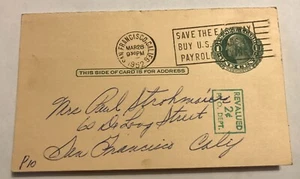 SAN FRANCISCO, CALIF.
MAR 28
9 PM
1952
SAVE THE EASY WAY
BUY U.S.
PAYROLL
THIS SIDE OF CARD IS FOR ADDRESS
REVALUED
2¢
P.O. DEPT.
Mrs Paul Strohmaier
60 De Long Street
San Francisco Caly
P10